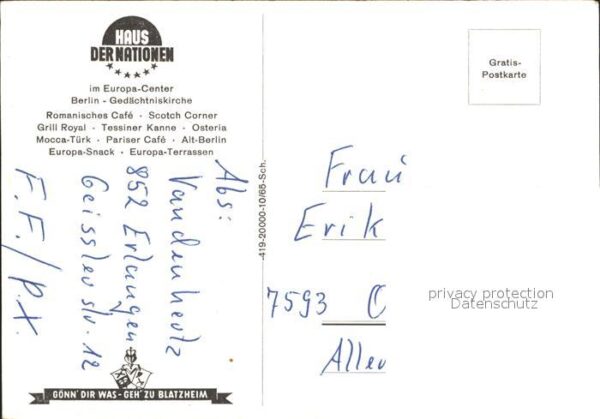 HAUS
DER NATIONEN
im Europa-Center
Berlin - Gedächtniskirche
Romanisches Café · Scotch Corner
Grill Royal · Tessiner Kanne · Osteria
Mocca-Türk · Pariser Café · Alt-Berlin
Europa-Snack · Europa-Terrassen
Abs:
Vandenheutz
852 Erlangen
Geisslerstr. 12
F.F./p.X.
GÖNN' DIR WAS - GEH' ZU BLATZHEIM
419-20000-10/66-Sch.
Gratis-
Postkarte
Frau
Erik
7593 O
Aller
privacy protection
Datenschutz